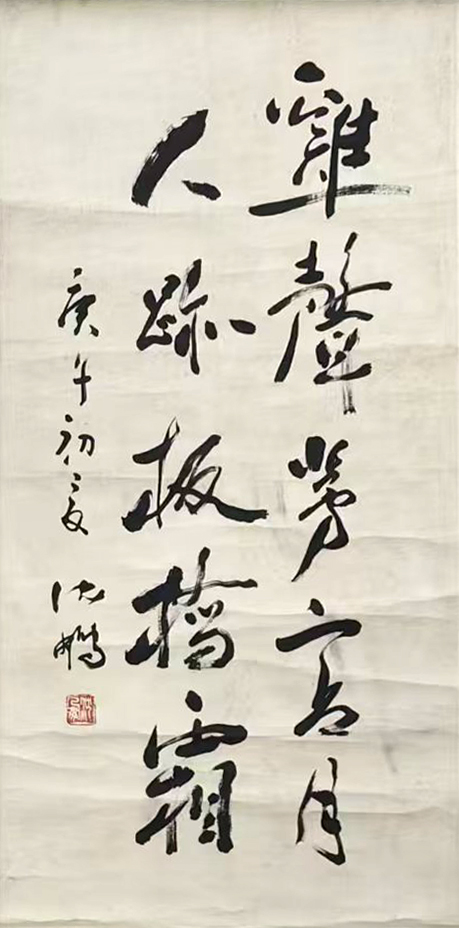 雞聲茅店月
人跡板橋霜
庚午初夏 沈鵬